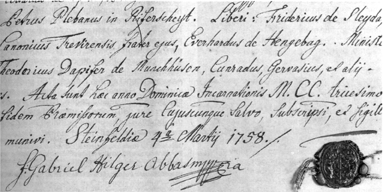 Petrus Plebanus in Rifferscheyt. Liberi: Fridericus de Sleyda
Canonicus Trevirensis frater ejus, Everhardus de Hengebag. Ministe
Teodericus Dapifer de Marchhusen, Cunradus, Gervasius, et alij
s. Acta sunt hæc anno Dominicæ Incarnationis M. CC. tricesimo
fidem Præmissorum, jure Cujuscunque Salvo, Subscripsi, et Sigill
munivi. Steinfeldiæ 4ta Martij 1758.
f. Gabriel Hilger Abbas